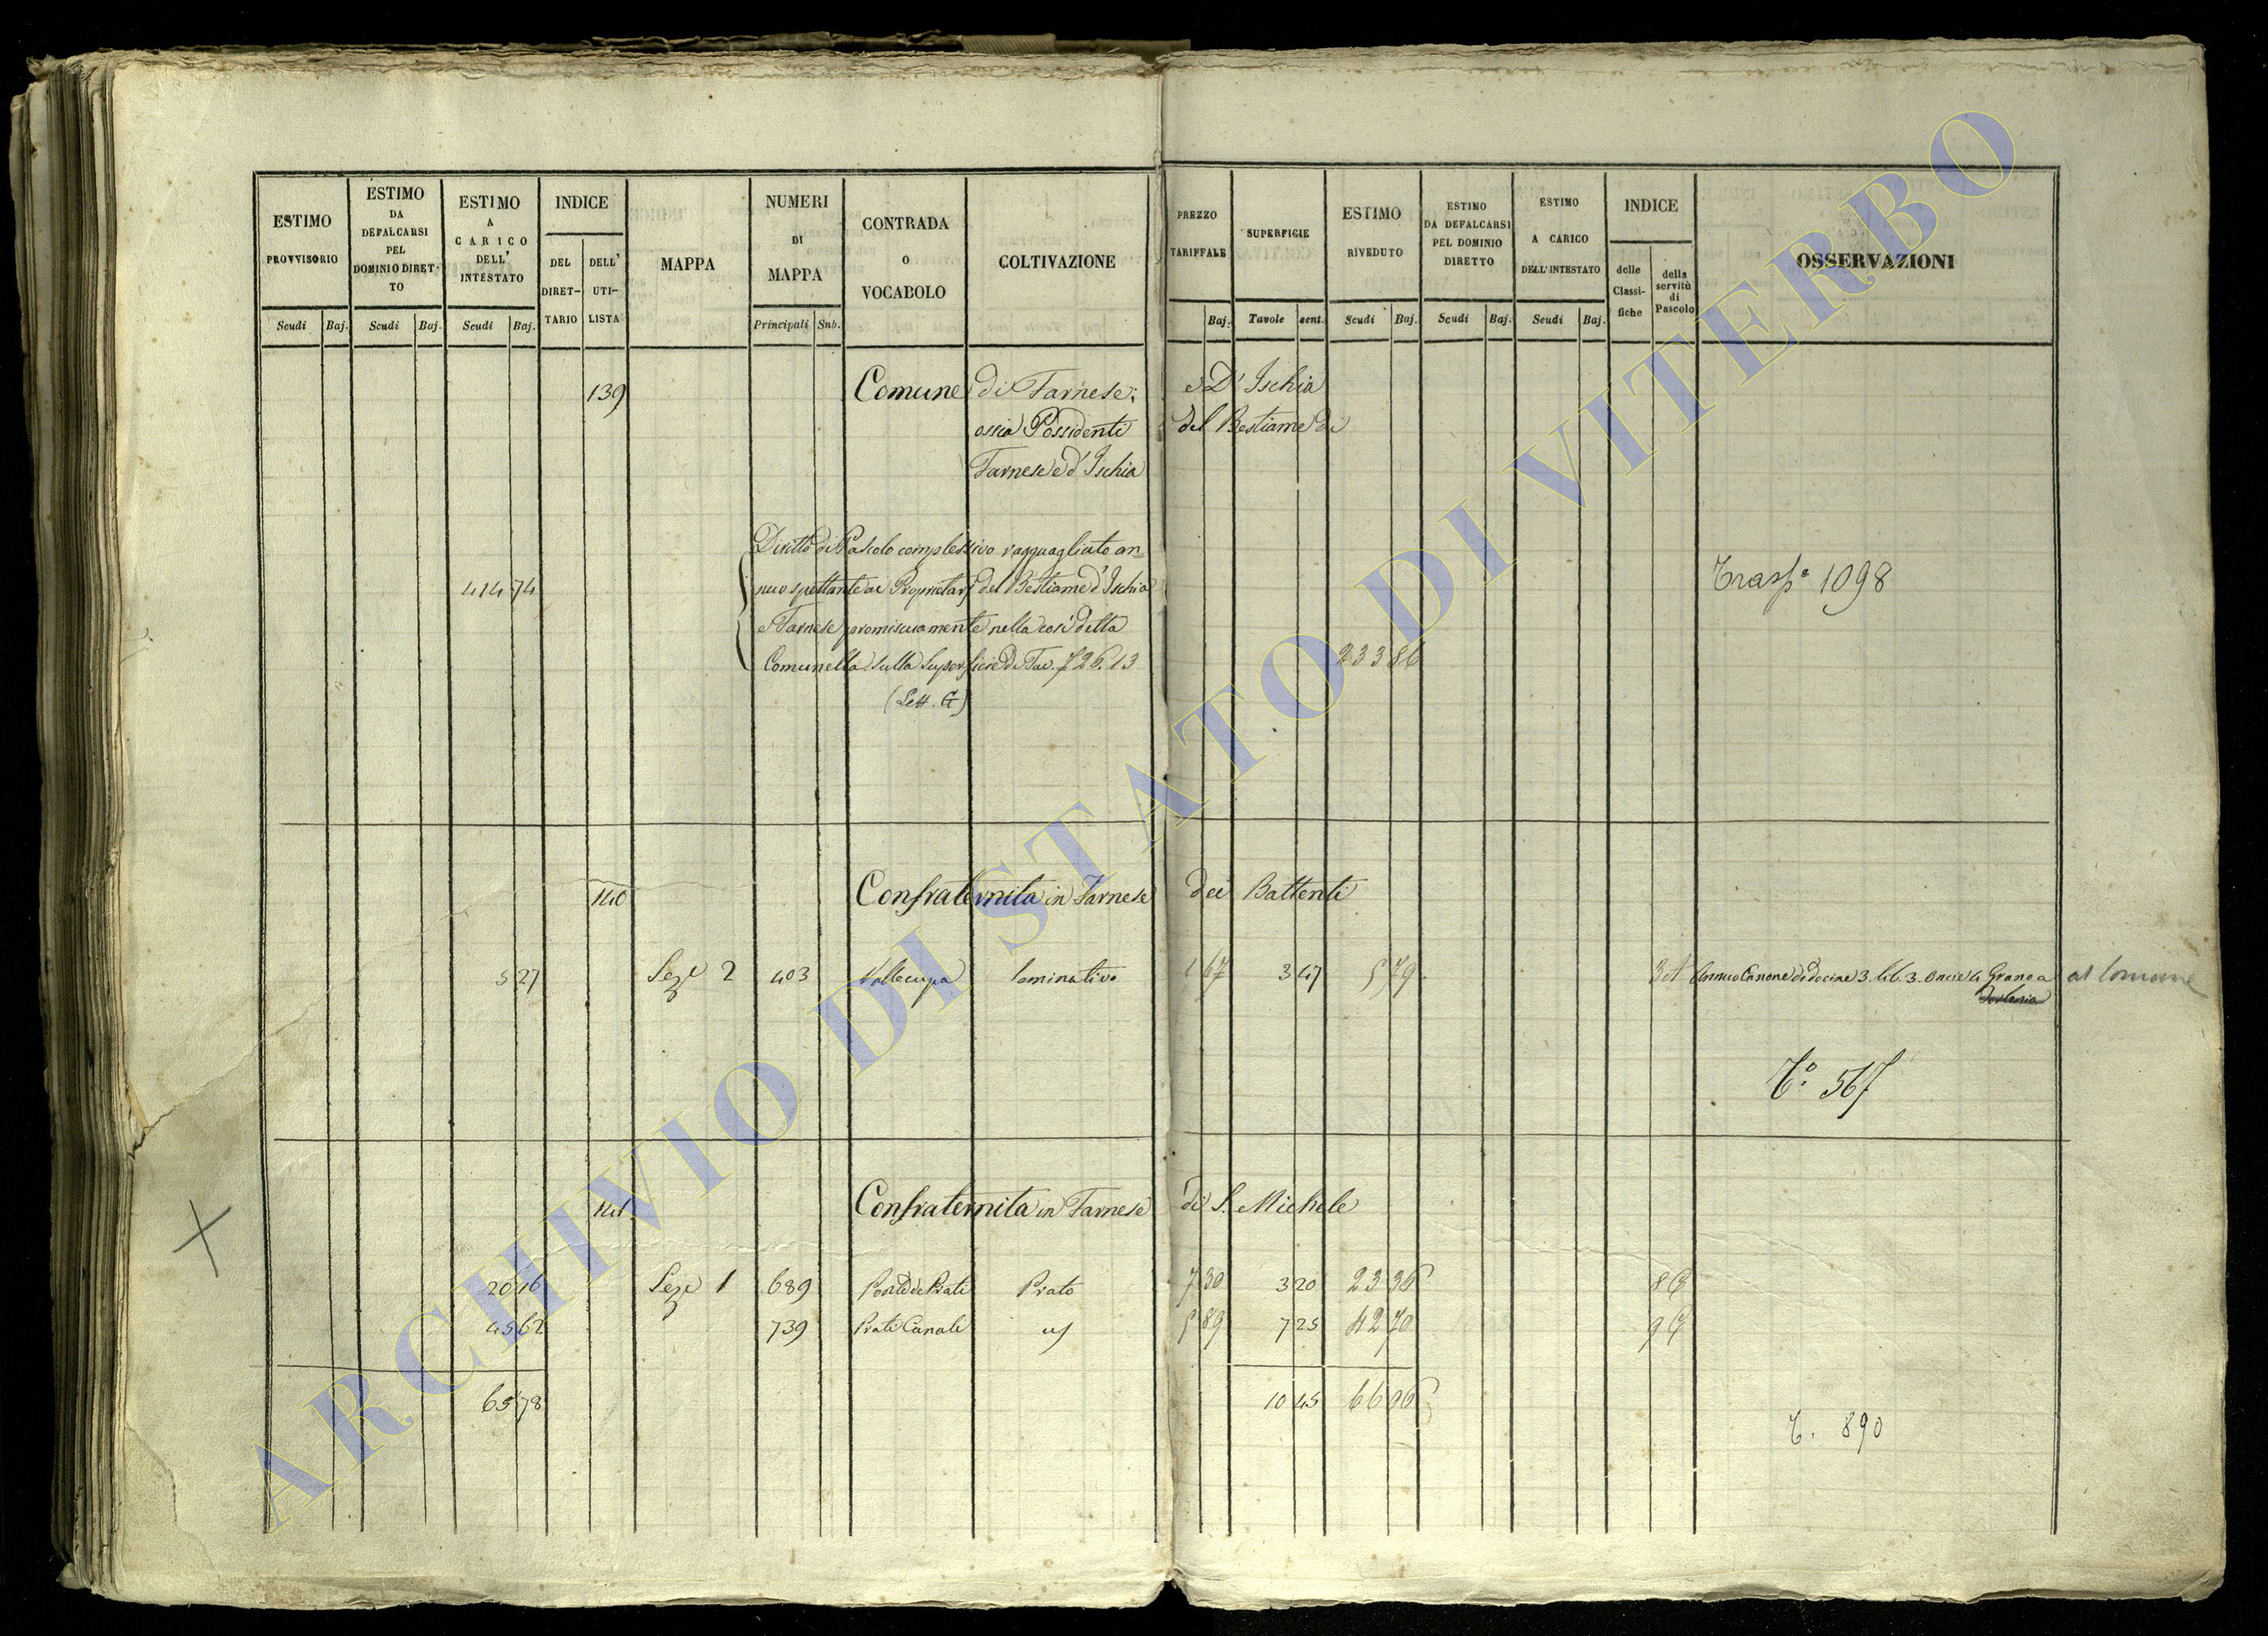 ESTIMO PROVVISORIO
Scudi Baj.
ESTIMO DA DEFALCARSI PEL DOMINIO DIRET-TO
Scudi Baj.
ESTIMO A CARICO DELL' INTESTATO
Scudi Baj.
INDICE
DEL DIRET-TARIO
DELL' UTI-LISTA
MAPPA
NUMERI DI MAPPA
Principali Sub.
CONTRADA O VOCABOLO
COLTIVAZIONE
PREZZO TARIFFALE
Baj.
SUPERFICIE
Tavole cent.
ESTIMO RIVEDUTO
Scudi Baj.
ESTIMO DA DEFALCARSI PEL DOMINIO DIRETTO
Scudi Baj.
ESTIMO A CARICO DELL'INTESTATO
Scudi Baj.
INDICE
delle Classi-fiche
della servitù di Pascolo
OSSERVAZIONI
139 Comune di Farnese; e D'Ischia
ossia Possidenti del Bestiame di
Farnese e d'Ischia
Diritto di Pascolo complessivo ragguagliato an=
414 74 nuo spettante ai Proprietarj del Bestiame d'Ischia Trasp.º 1098
e Farnese promiscuamente nella così detta
Comunella sulla Superficie di Tav. 726.13 233 86
(Lett. G)
140 Confraternita in Farnese dei Battenti
5 27 Sez.e 2 403 Vallecupa Seminativo 1 67 3 47 5 79 Annuo Canone di Decine 3. lib. 3. Oncie 4 Grano a al Comune
T.º 567
141 Confraternita in Farnese di S. Michele
20 16 Sez.e 1 689 Ponte de Prati Prato 7 30 3 20 23 36
45 62 739 Prati Canali 5 89 7 25 42 70
65 78 10 45 66 06
T. 890
ARCHIVIO DI STATO DI VITERBO